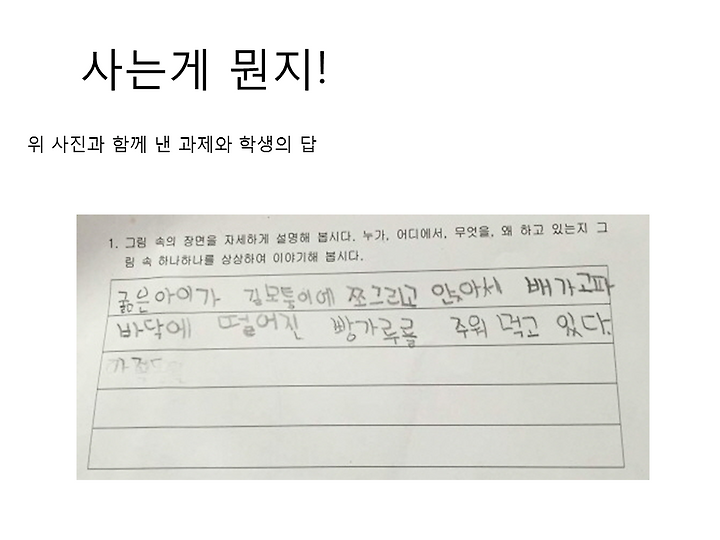 사는게 뭔지!
위 사진과 함께 낸 과제와 학생의 답
1. 그림 속의 장면을 자세하게 설명해 봅시다. 누가, 어디에서, 무엇을, 왜 하고 있는지 그
림 속 하나하나를 상상하여 이야기해 봅시다.
굶은아이가 길모퉁이에 쪼그리고 앉아서 배가고파
바닥에 떨어진 빵가루를 주워 먹고 있다.